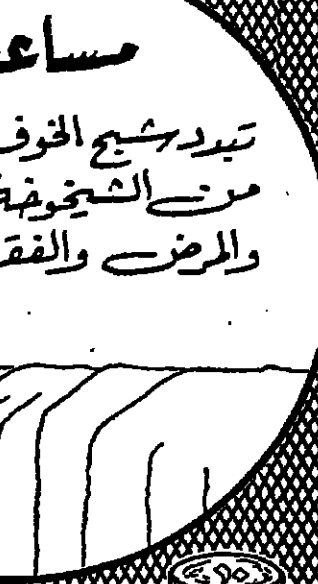 مساعـ
تبدد شبح الخوف
من الشيخوخة
والمرض والفقـ